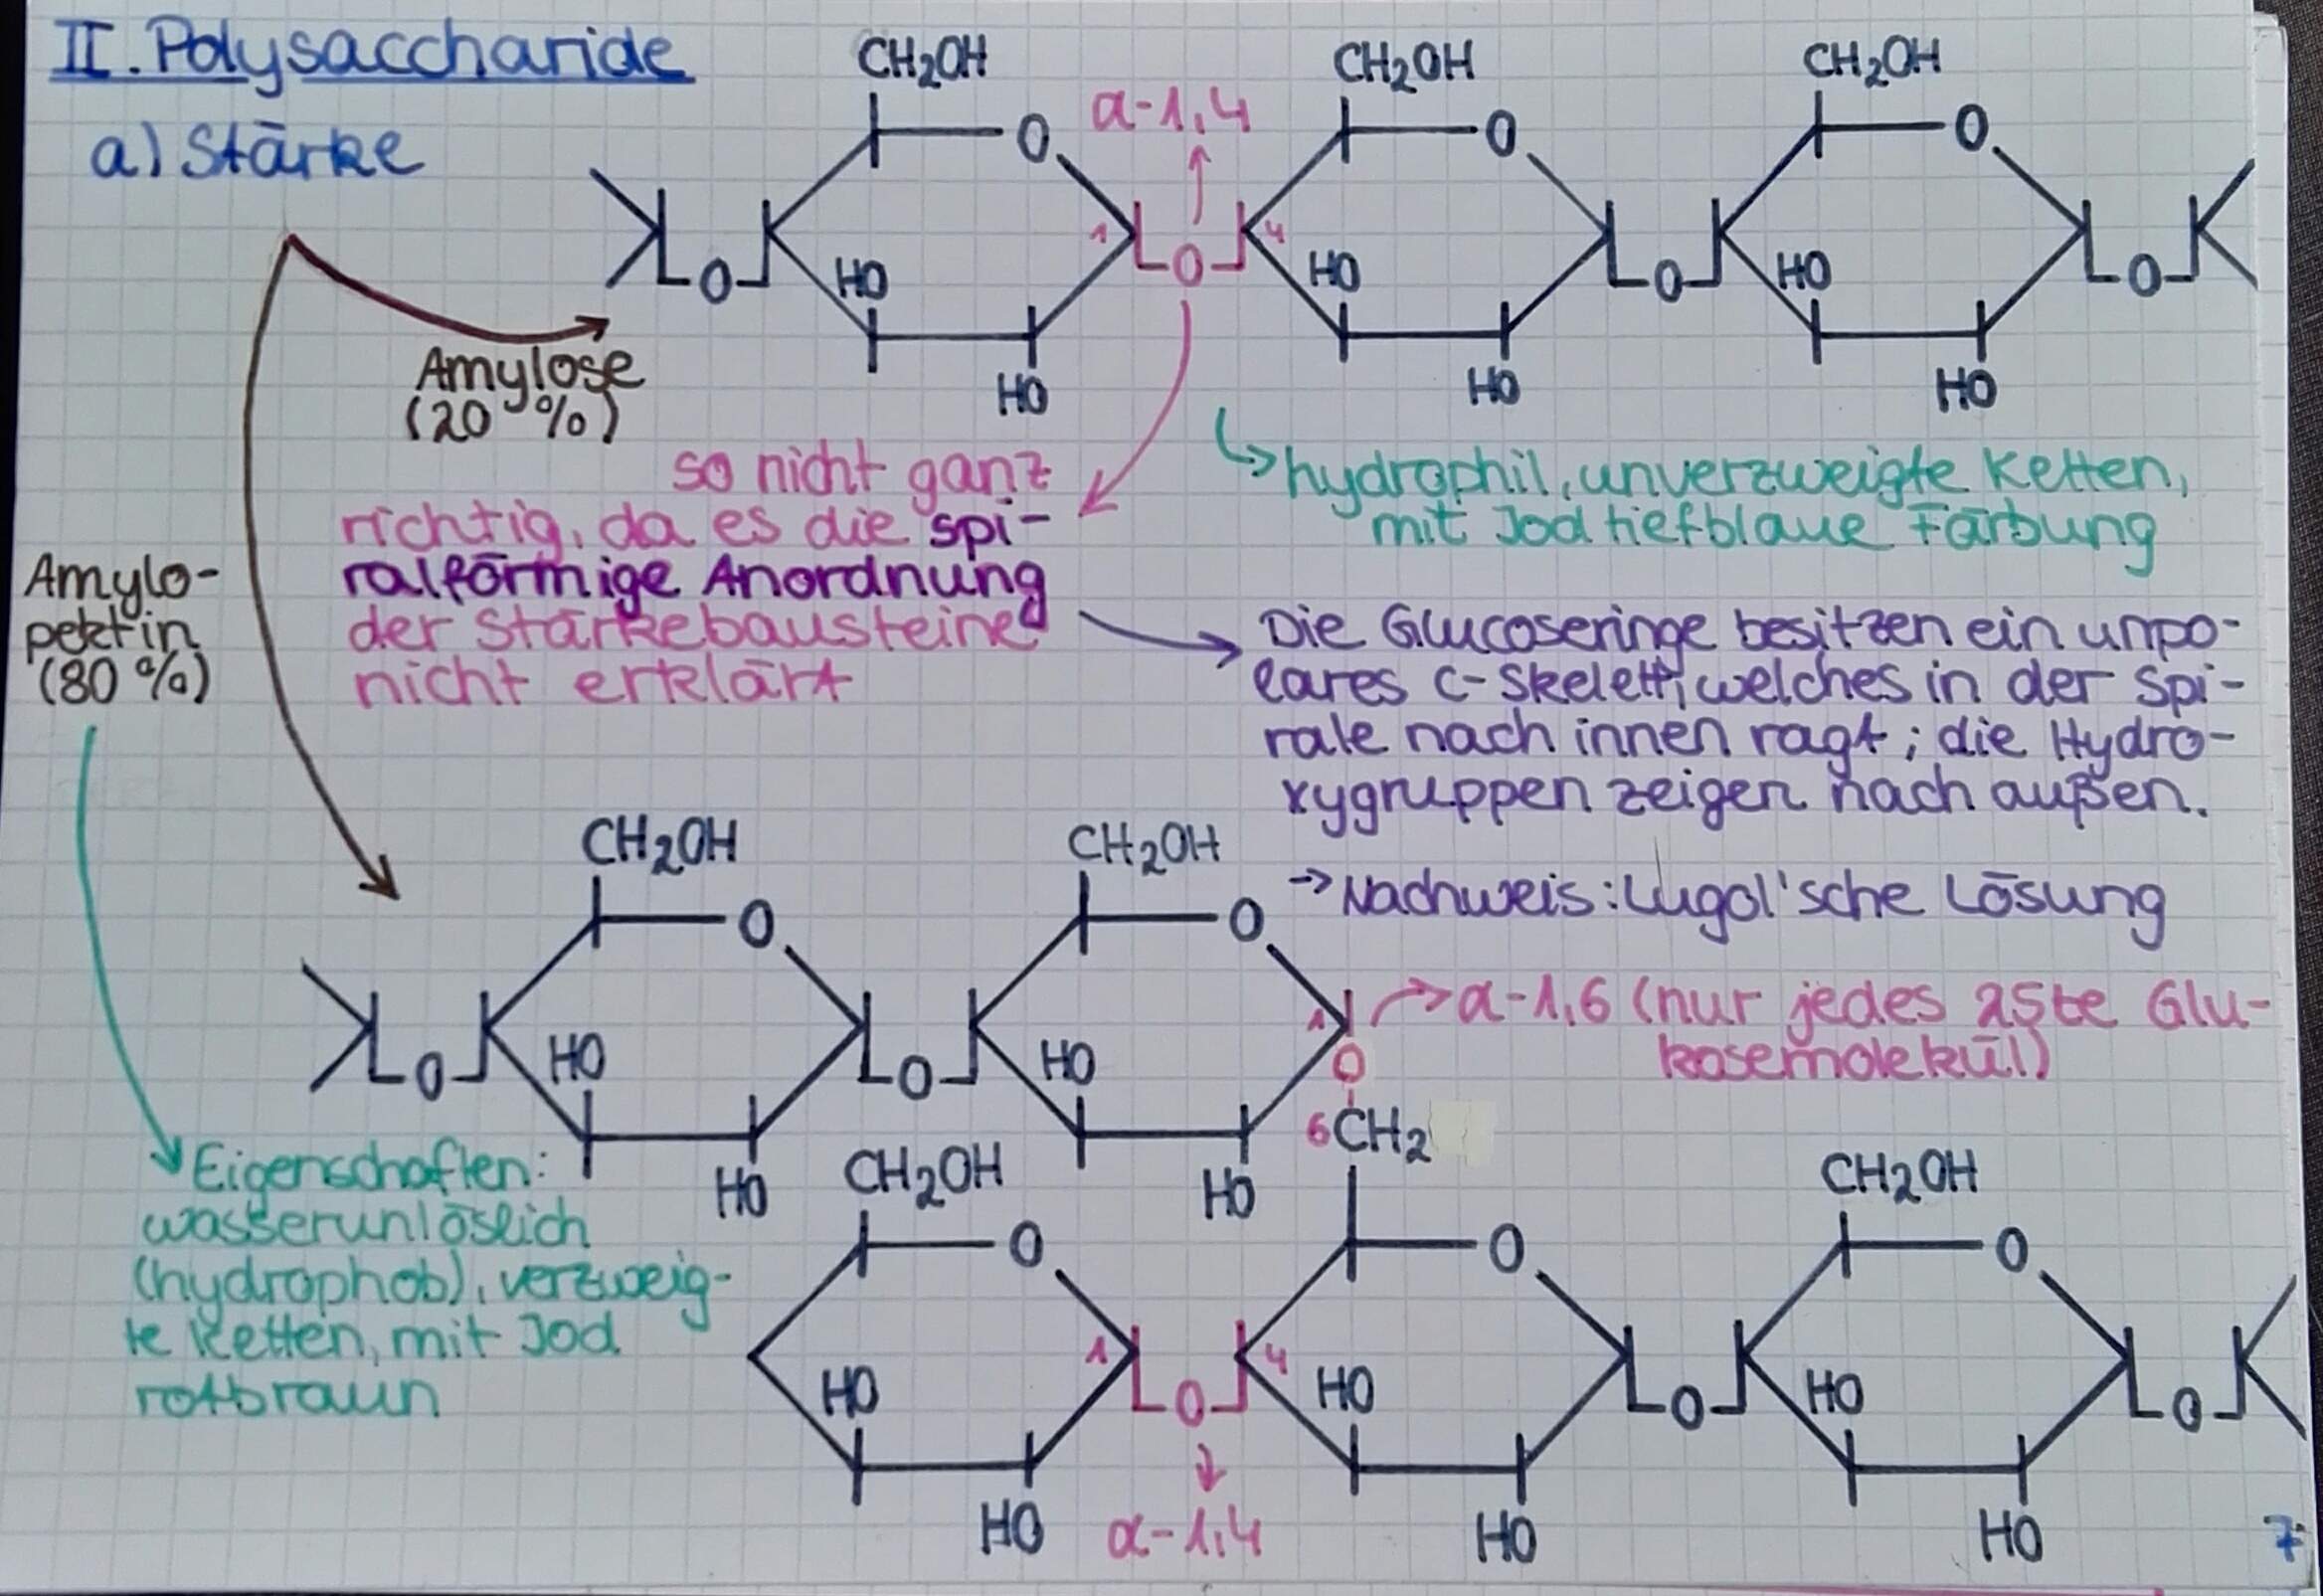 II. Polysaccharide
a) Stärke
CH₂OH CH₂OH CH₂OH
α-1,4
O O O
1 4
O O O O
HO HO HO
HO HO HO
Amylose
(20 %)
so nicht ganz
richtig, da es die spi-
ralförmige Anordnung
der Stärkebausteine
nicht erklärt
hydrophil, unverzweigte Ketten,
mit Jod tiefblaue Färbung
Die Glucoseringe besitzen ein unpo-
lares C-Skelett, welches in der Spi-
rale nach innen ragt; die Hydro-
xygruppen zeigen nach außen.
→ Nachweis: Lugol'sche Lösung
Amylo-
pektin
(80 %)
CH₂OH CH₂OH
O O
1
α-1,6 (nur jedes 25te Glu-
kosemolekül)
O O O
HO HO
6CH₂
HO HO
Eigenschaften:
wasserunlöslich
(hydrophob), verzweig-
te Ketten, mit Jod
rotbraun
CH₂OH CH₂OH
O O O
1 4
O O O
HO HO HO
HO HO HO
α-1,4
7